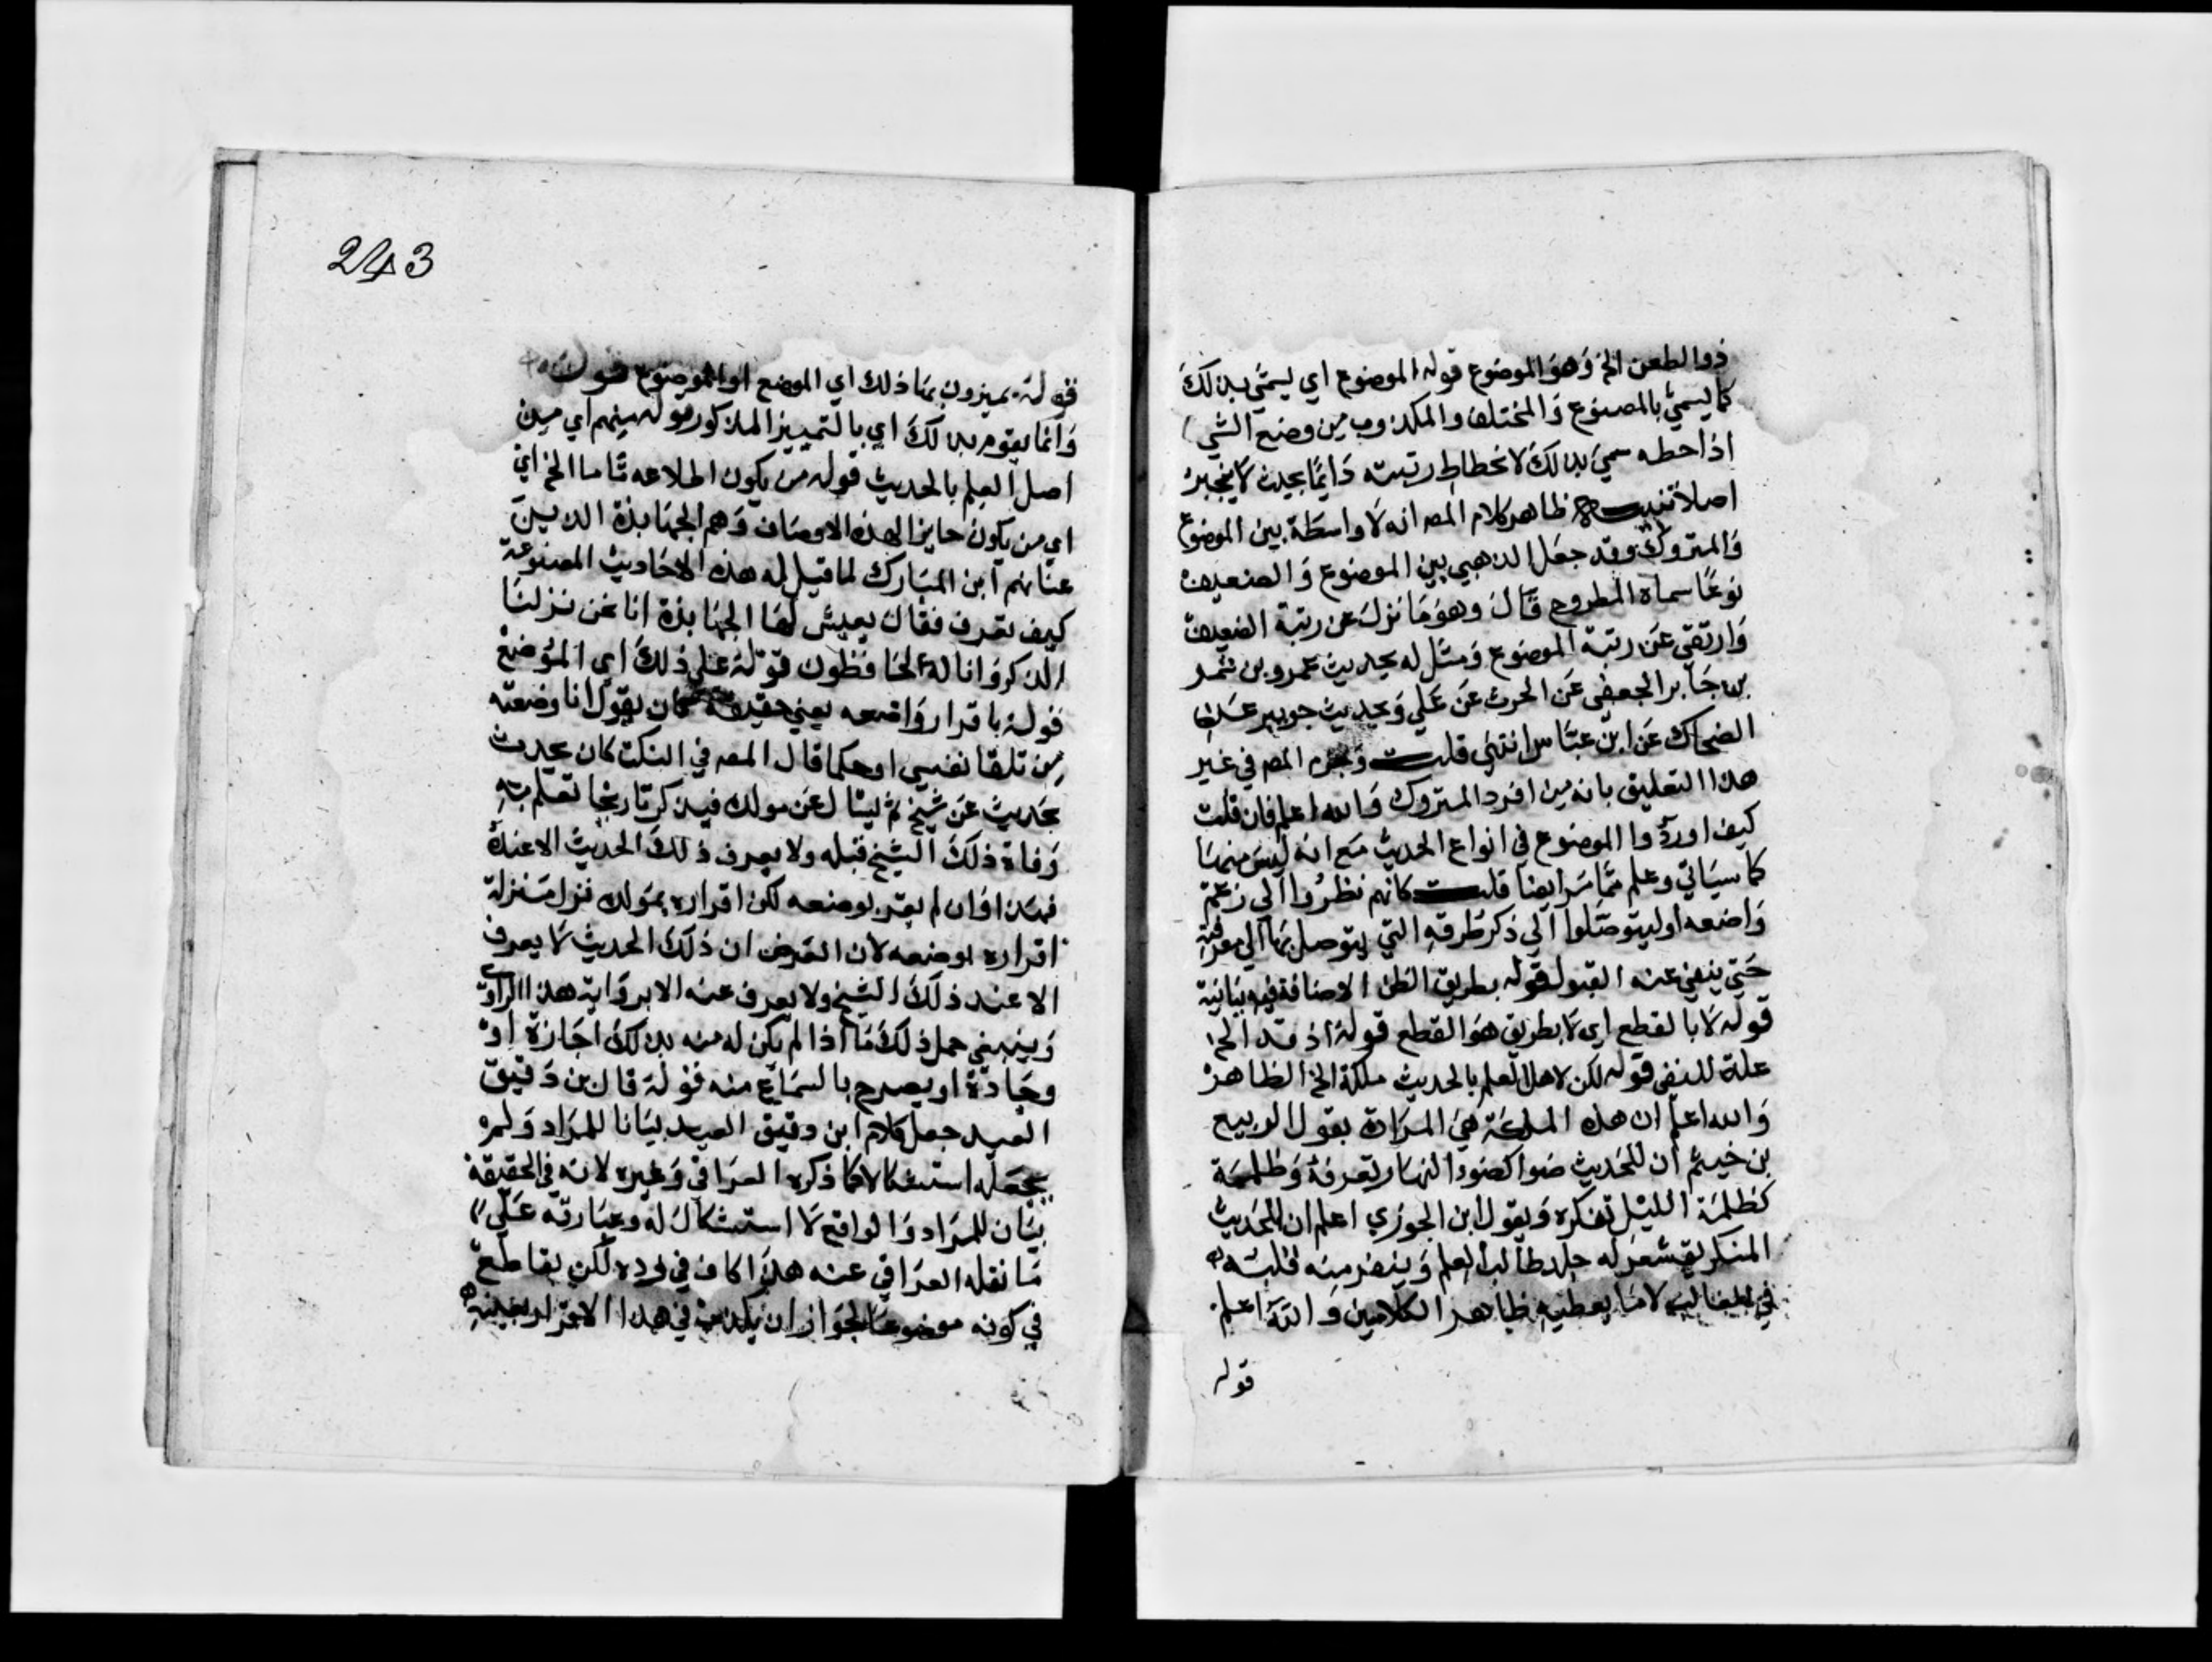 ذوا لطعن الخ وهو الموضوع قوله الموضوع اي ليسمي بذلك
كما يسمي بالمصنوع والمختلف والمكذوب من وضع الشي
اذا حطه سمي بذلك لانحطاط رتبته دايما بحيث لا ينجبر
اصلا تنبيه ظاهر كلام المصه انه لا واسطة بين الموضوع
والمتروك وقد جعل الذهبي بين الموضوع والضعيف
نوعا سماه المطروح قال وهو ما نزل عن رتبة الضعيف
وارتقي عن رتبة الموضوع ومثل له بحديث عمرو بن شمر
عن جابر الجعفي عن الحرث عن علي وبحديث جويبر عن
الضحاك عن ابن عباس انتهي قلت وجزم المصه في غير
هذا التعليق بانه من افرد المتروك والله اعلم فان قلت
كيف اوردوا الموضوع في انواع الحديث مع انه ليس منها
كما سياتي وعلم مما مر ايضا قلت كانهم نظروا الي زعم
واضعه اوليتوصلوا الي ذكر طرقه التي يتوصل بها الي معرفته
حتي ينفي عنه القبول قوله بطريق الظن الاضافة فيه بيانية
قوله لا بالقطع اي لا بطريق هو القطع قوله اذ قد الخ
علة للنفي قوله لكن لاهل العلم بالحديث ملكة الخ الظاهر
والله اعلم ان هذه الملكة هي المرادة بقول الربيع
بن خيثم ان للحديث ضوا كضوء النهار تعرفه وظلمة
كظلمة الليل تنكره وبقول ابن الجوزي اعلم ان الحديث
المنكر يقشعر له جلد طالب العلم وينفر منه قلبه
في الغالب لا ما يعطيه ظاهر الكلامين والله اعلم
قوله
243
قوله يميزون بها ذلك اي الموضع او الموضوع قوله
وانما يقوم بذلك اي بالتمييز المذكور قوله منهم اي من
اصل العلم بالحديث قوله من يكون اطلاعه تاما الخ اي
اي من يكون حايزا لهذه الاوصاف وهم الجهابذة الذين
عناهم ابن المبارك لما قيل له هذه الاحاديث المصنوعة
كيف تعرف فقال يعيش لها الجهابذة انا نحن نزلنا
الذكر وانا له لحافظون قوله علي ذلك اي الموضع
قوله باقرار واضعه يعني حقيقة كان يقول انا وضعته
من تلقا نفسي او حكما قال المصه في النكت كان يحدث
بحديث عن شيخ ثم يسال عن مولده فيذكر تاريخا تعلم به
وفاة ذلك الشيخ قبله ولا يعرف ذلك الحديث الا عنده
فهذا وان لم يقر بوضعه لكن اقراره بمولده نزل منزلة
اقراره بوضعه لان الفرض ان ذلك الحديث لا يعرف
الا عند ذلك الشيخ ولا يعرف عنه الا برواية هذا الراوي
وينبغي حمل ذلك ما اذا لم يكن له منه بذلك اجازة او
وجادة او يصرح بالسماع منه قوله قال بن دقيق
العيد جعل كلام ابن دقيق العيد بيانا للمراد ولم
يجعله استشكالا كما ذكره العراقي وغيره لانه في الحقيقة
بيان للمراد والواقع لا استشكال له وعبارته علي
ما نقله العراقي عنه هذا كاف في رده لكن بقاطع
في كونه موضوعا لجواز ان يكذب في هذا الاقرار بعينه